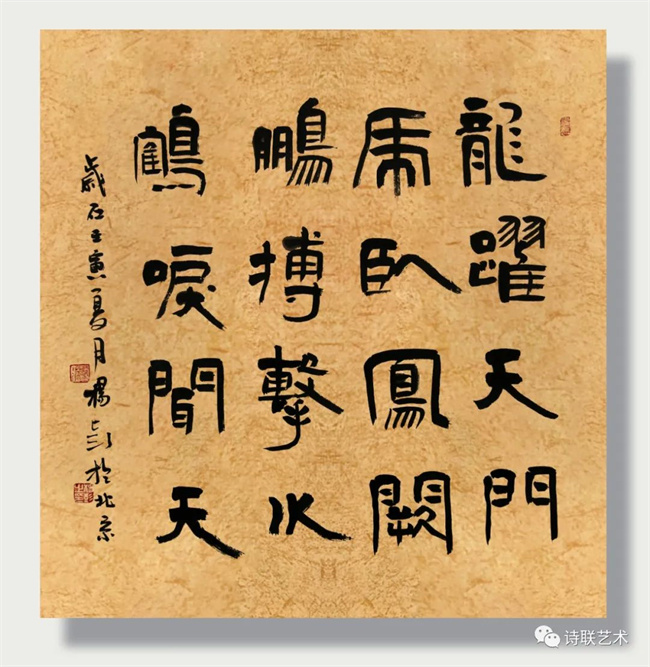 龍躍天門
虎臥鳳闕
鵬搏擊水
鶴唳聞天
歲在壬寅夏月楊於北京
诗联艺术